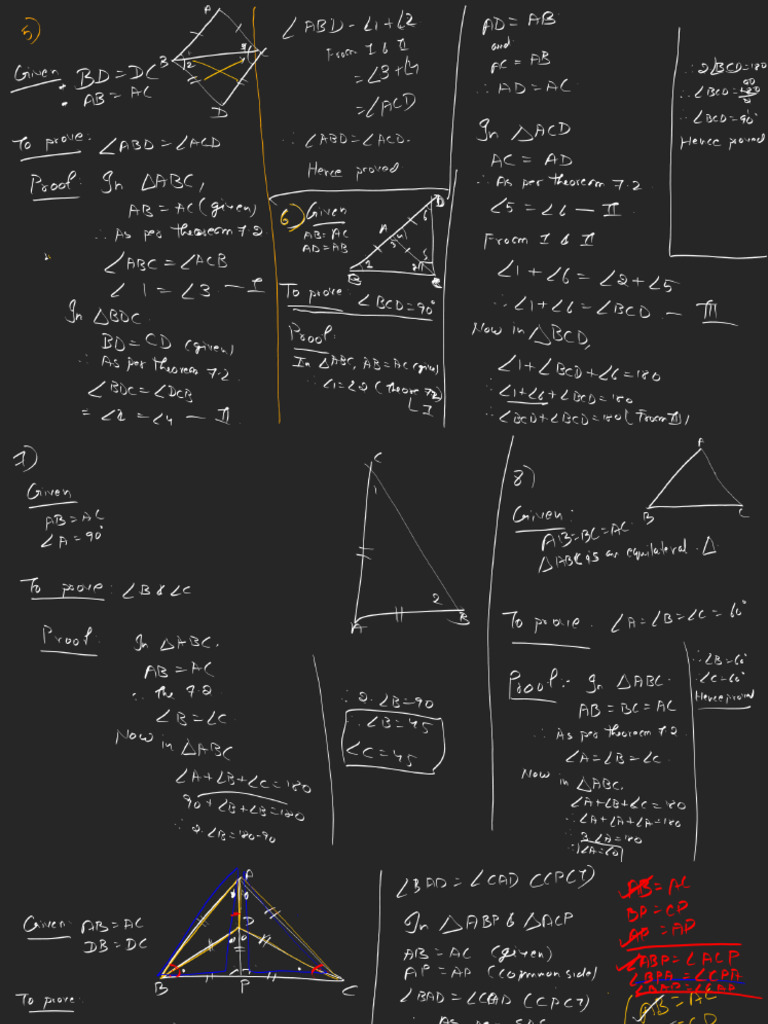 5)
Given
• BD = DC
• AB = AC
A
B
C
D
2
To prove: ∠ABD = ∠ACD
Proof: In △ABC,
AB = AC (given)
∴ As per theorem 7.2
∠ABC = ∠ACB
∠1 = ∠3 — I
In △BDC
BD = CD (given)
∴ As per theorem 7.2.
∠BDC = ∠DCB
= ∠2 = ∠4 — II
∠ABD - ∠1 + ∠2
From I & II
= ∠3 + ∠4
= ∠ACD
∴ ∠ABD = ∠ACD.
Hence proved
6) Given
AB = AC
AD = AB
D
A
B
C
6
5
2
To prove: ∠BCD = 90°
Proof:
In △ABC, AB = AC (given)
∴ ∠1 = ∠2 (theore 7.2)
I
AD = AB
and
AC = AB
∴ AD = AC.
In △ACD
AC = AD
∴ As per theorem 7.2.
∠5 = ∠6 — II
From I & II
∠1 + ∠6 = ∠2 + ∠5
∴ ∠1 + ∠6 = ∠BCD. — III
Now in △BCD,
∠1 + ∠BCD + ∠6 = 180
∴ ∠1 + ∠6 + ∠BCD = 180
∴ ∠BCD + ∠BCD = 180 (From III)
∴ 2∠BCD = 180
∴ ∠BCD = 180 90
2
∴ ∠BCD = 90°
Hence proved
7)
Given
AB = AC
∠A = 90°
C
1
2
A
B
To prove: ∠B & ∠C
Proof: In △ABC.
AB = AC
∴ The 7.2
∠B = ∠C
Now in △ABC
∠A + ∠B + ∠C = 180
90 + ∠B + ∠B = 180
∴ 2∠B = 180 - 90
∴ 2∠B = 90
∴ ∠B = 45
∠C = 45
8)
A
B
C
Given:
AB = BC = AC
△ABC is an equilateral △
To prove. ∠A = ∠B = ∠C = 60°
Proof:- In △ABC.
AB = BC = AC
∴ As per theorem 7.2
∠A = ∠B = ∠C
Now in △ABC.
∠A + ∠B + ∠C = 180
∴ ∠A + ∠A + ∠A = 180
∴ 3∠A = 180
∴ ∠A = 60
∴ ∠B = 60°
∠C = 60°
Hence proved
Given: AB = AC
DB = DC
A
D
B
P
C
To prove:
∠BAD = ∠CAD (CPCT)
In △ABP & △ACP
AB = AC (given)
AP = AP (common side)
∠BAD = ∠CAD (CPCT)
AB = AC
BP = CP
AP = AP
∠ABP = ∠ACP
∠BPA = ∠CPA
∠BAP = ∠CAP
AB = AC